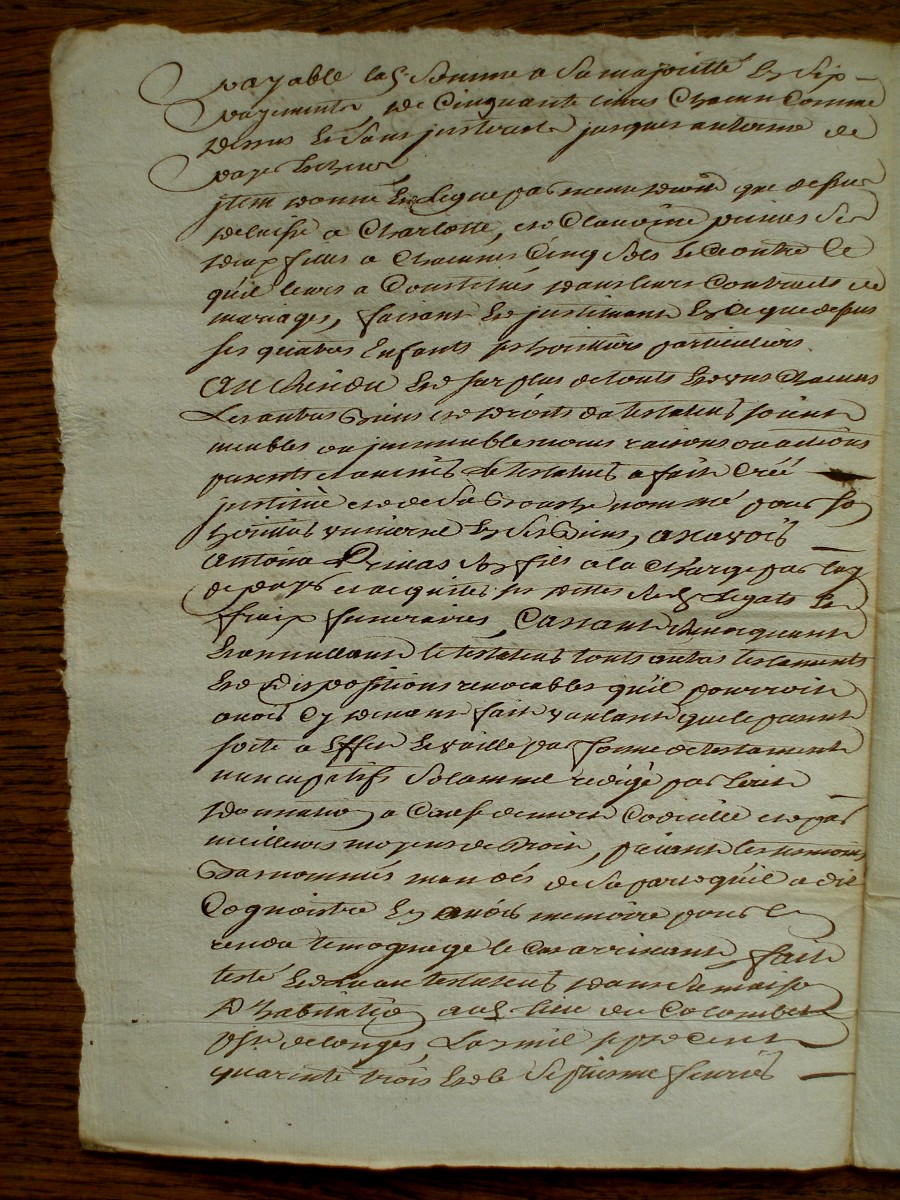 payable lad. somme a sa majoritté En six
payements de Cinquante livres Chacun Comme
dessus Et sans interest jusques au terme de
payer Escheu
jtem donne Et Legue par mesme droit que dessus
delaisse a Charlotte, et Claudine primas ses
deux filles a Chacunes Cinq sols Et Contre Ce
qu'il leurs a Constitués dans leurs Contracts de
mariages, faisant Et jnstituant En Ce que dessus
ses quatres Enfants ses hoirittiers particulliers
Au Residu Et surplus de touts Et uns Chacuns
Les autres Biens et droits du testateur soient
meubles ou jmmeubles noms raisons ou actions
presents et advenir Le testateur a fait Creé
jnstitué et de sa Bouche nommé pour son
heritier universel En ses Biens, ascavoir
Antoine Primas son fils a la Charge par luy
de payer et acquitter ses dettes desd. Legats Et
fraix funeraires, Cassant Revocquant
Et annullant le testateur touts autres testaments
Et dispositions revocables qu'il pourroit
avoir Cy devant fait voulant que le present
sorte a Effet Et vaille par forme de testament
nuncupatifs solamnel redigé par Ecrit
donnation a Cause de mort Codicille et par
meilleurs moyens de Droit, priant les temoins
Basnommés mandés de sa part qu'il a dit
Cognoistre En avoir memoire pour En
rendre temognage le Cas arrivant, fait
testé Et au testateur dans sa maison
D'habitation aud. lieu du Colombet
psse. de longes, L'an mil sept Cent
quarante trois Et le septiesme feuvrier